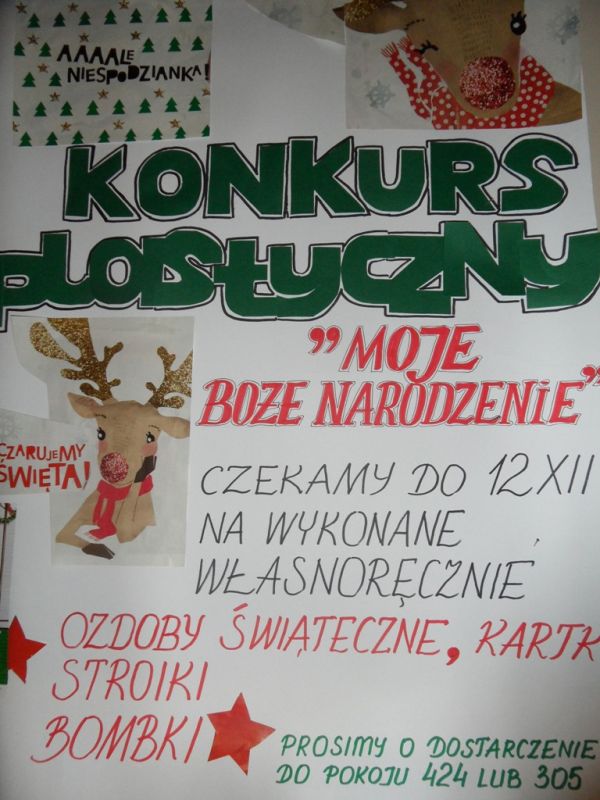 AAAALE
NIESPODZIANKA!
KONKURS
PLASTYCZNY
"MOJE
BOŻE NARODZENIE"
CZARUJEMY
ŚWIĘTA!
CZEKAMY DO 12 XII
NA WYKONANE
WŁASNORĘCZNIE
OZDOBY ŚWIĄTECZNE, KARTK
STROIKI
BOMBKI
PROSIMY O DOSTARCZENIE
DO POKOJU 424 LUB 305